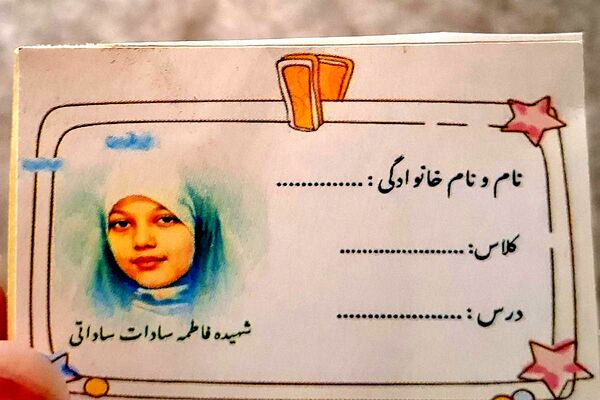 نام و نام خانوادگی : ..............
کلاس: ....................
درس : ....................
شهیده فاطمه سادات ساداتی